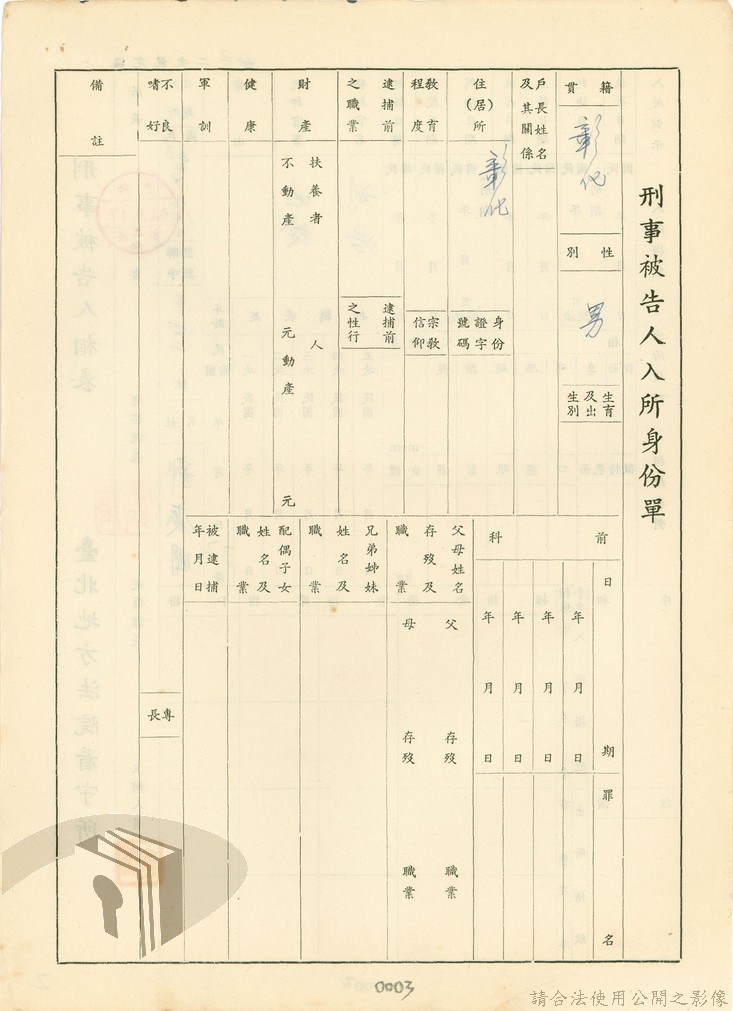 刑事被告人入所身份單
籍貫
彰化
性別
男
生育及出生別
戶長姓名及其關係
住(居)所
彰化
身份證字號碼
教育程度
宗教信仰
逮捕前之職業
逮捕前之性行
財產
扶養者 人
不動產 元動產 元
健康
軍訓
不良嗜好
專長
備註
前科
日期
年 月 日
年 月 日
年 月 日
年 月 日
罪名
父母姓名存歿及職業
父 存歿 職業
母 存歿 職業
兄弟姊妹姓名及職業
配偶子女姓名及職業
被逮捕年月日
0003
請合法使用公開之影像